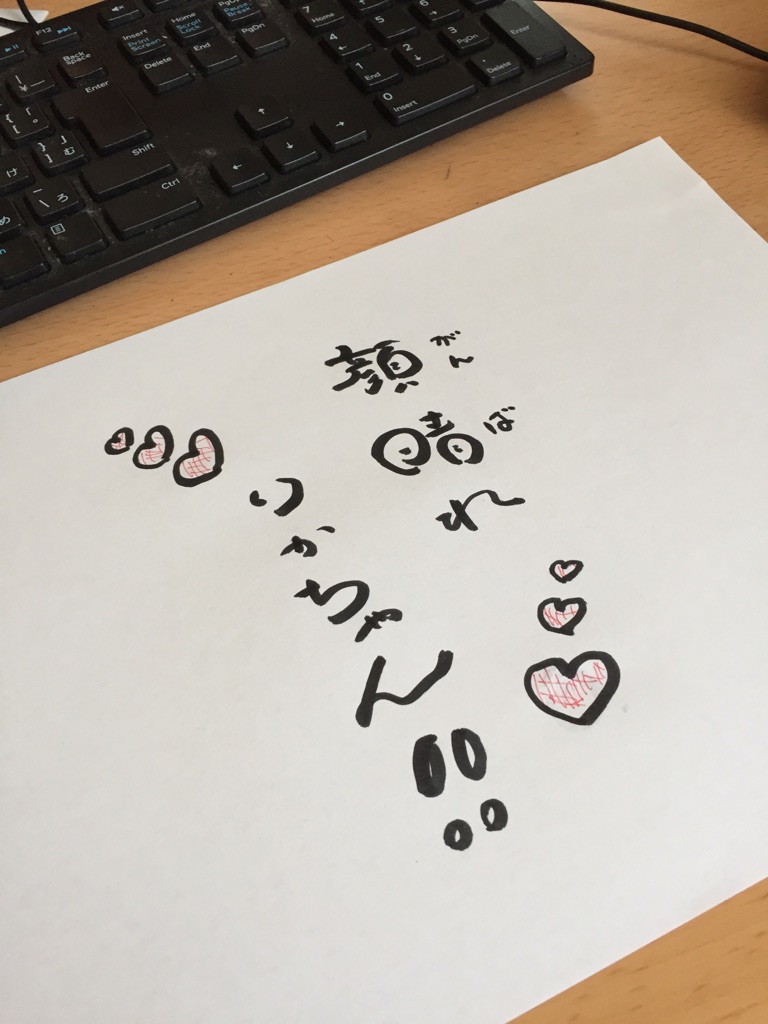 顔晴れ
がんば
りかちゃん!!
F12
Insert
Print
Screen
Home
Scroll
Lock
Pause
Break
Back
Space
Delete
End
PgDn
Enter
Shift
Ctrl
7
Home
4
←
5
6
1
End
2
↓
3
PgDn
Enter
0
Insert
.
Delete
↑
←
↓
→
¥
ー
{
[
゜
}
]
」
む
け
ろ
め